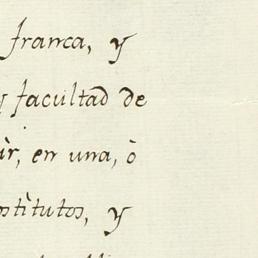 franca, y
y facultad de
ir, en una, ò
stìtutos, y